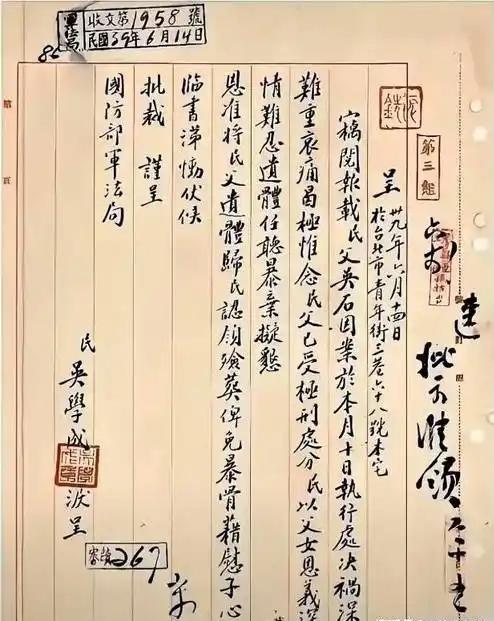 軍法局
收文第1958號
民國39年6月14日
第三組
速
批示准領
呈
卅九年六月十四日
於台北市青年街三巷六十八號本宅
竊閱報載民父吳石因業於本月十日執行處决禍深
難重哀痛曷極惟念民父已受極刑處分民以父女恩義深
情難忍遺體任聽暴棄擬懇
恩准將民父遺體歸民認領殮葬俾免暴骨藉慰子心
臨書涕慟伏候
批裁 謹呈
國防部軍法局
民 吳學成 淚呈
267